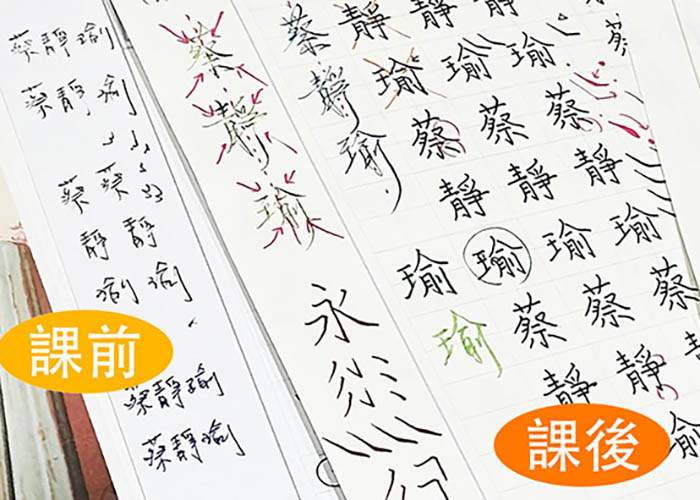 蔡靜瑜
蔡靜 瑜
蔡 蔡
靜 靜
瑜 瑜
蔡靜瑜
蔡靜瑜
課前
蔡
靜
瑜
永
蔡 靜 靜 靜 靜
靜 瑜 瑜 瑜 瑜
瑜 蔡 蔡 蔡
靜 靜 靜
瑜 瑜 瑜 瑜
瑜 蔡 蔡 蔡
靜 靜 靜
瑜
課後